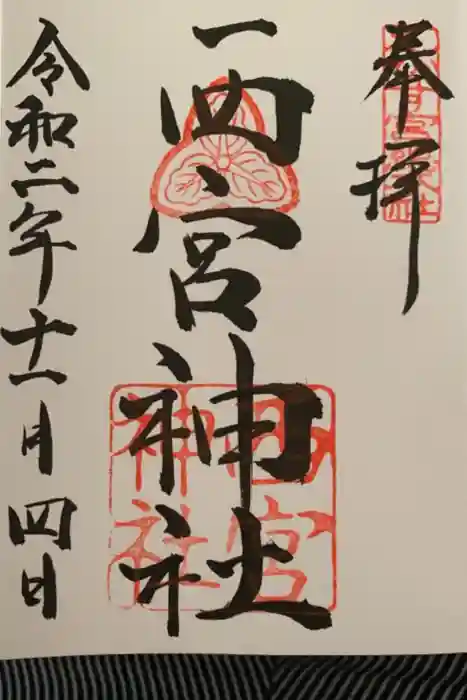 奉拝
西宮神社
西宮神社
令和二年十一月四日